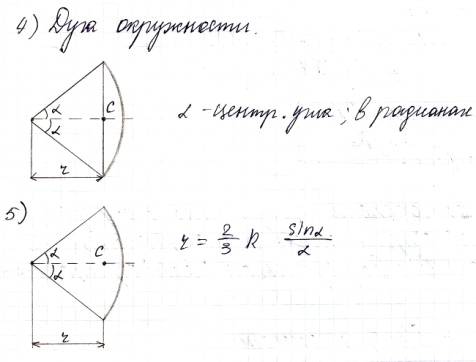 4) Дуга окружности.
α
α
C
r
α - центр. угла; в радианах
5)
α
α
C
r
r = 2/3 R sinα/α